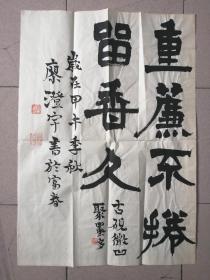 重簾不捲
留香久
古硯微凹
聚墨多
歲在甲午季秋
廖澄宇書於富春